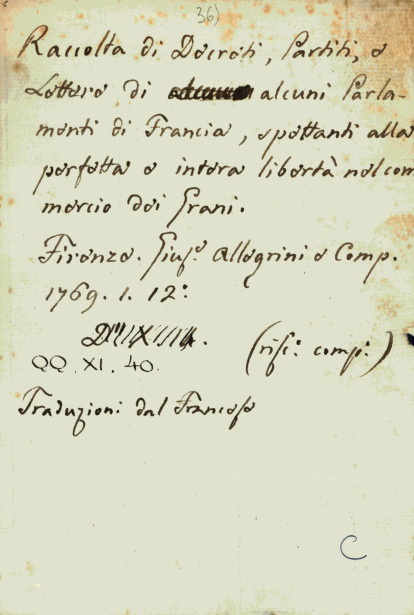 36)
Raccolta di Decreti, Partiti, e
Lettere di alcuni Parla-
menti di Francia, spettanti alla
perfetta e intera libertà nel com
mercio dei Grani.
Firenze. Gius.e Allegrini e Comp.
1769. 1. 12:
(risc.o comp.o)
QQ. XI. 40.
Traduzioni dal Francese
C